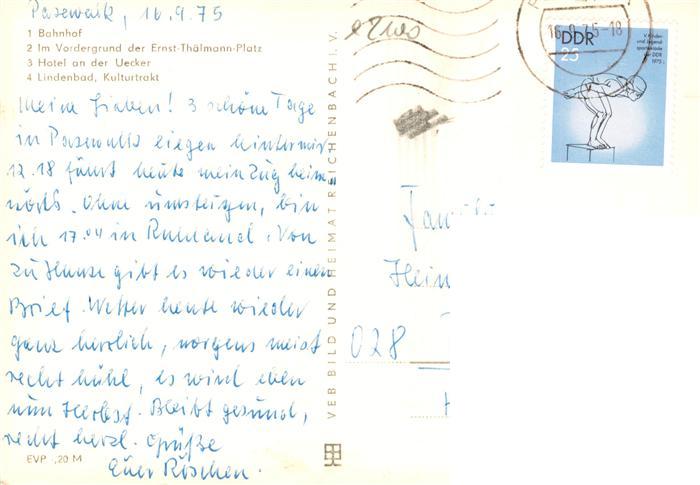 Pasewalk, 16.9.75
1 Bahnhof
2 Im Vordergrund der Ernst-Thälmann-Platz
3 Hotel an der Uecker
4 Lindenbad, Kulturtrakt
Meine Lieben! 3 schöne Tage
in Pasewalk liegen hinter mir
12.18 fährt heute mein Zug heim
wärts. Ohne Umsteigen, bin
ich 17.04 in Ruhland. Von
zu Hause gibt es wieder einen
Brief. Wetter heute wieder
ganz herrlich, morgens meist
recht kühl, es wird eben
nun Herbst. Bleibt gesund,
recht herzl. Grüße
Euer Röschen.
EVP -,20 M
VEB BILD UND HEIMAT REICHENBACH I.V.
16.9.75-18
DDR
25
V. Kinder-
und Jugend-
spartakiade
der DDR
1975
Fam
Hein
028